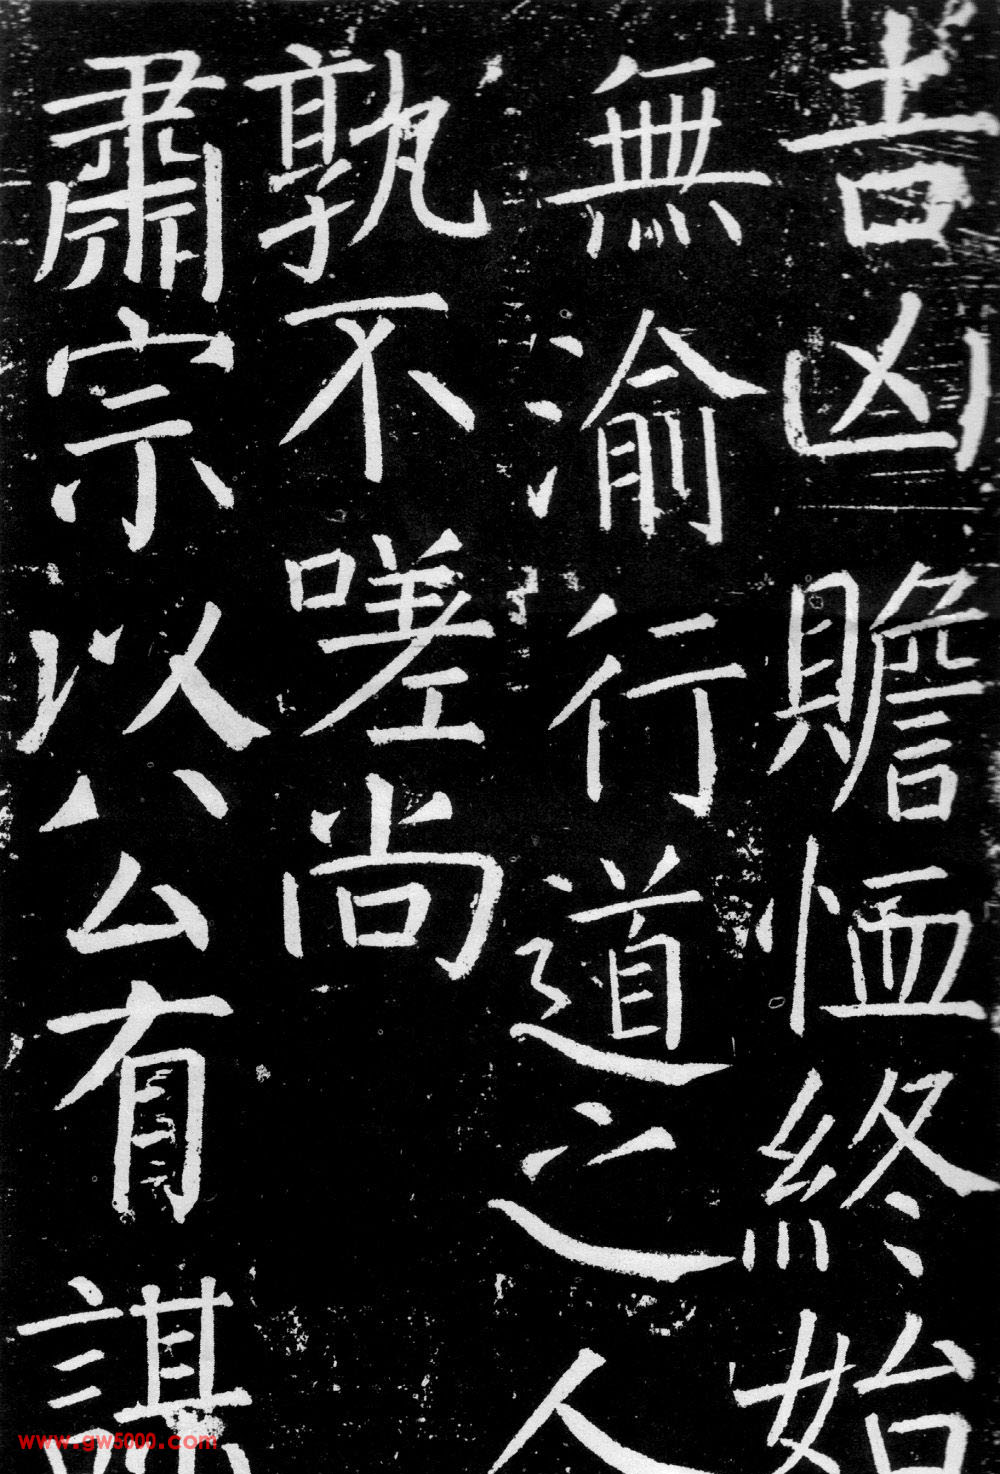 吉凶贍恤終始
無渝行道之人
孰不嗟尚
肅宗以公有謀
www.gw5000.com